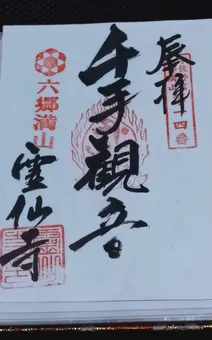 奉拝
四番
千手観音
六郷満山
霊仙寺